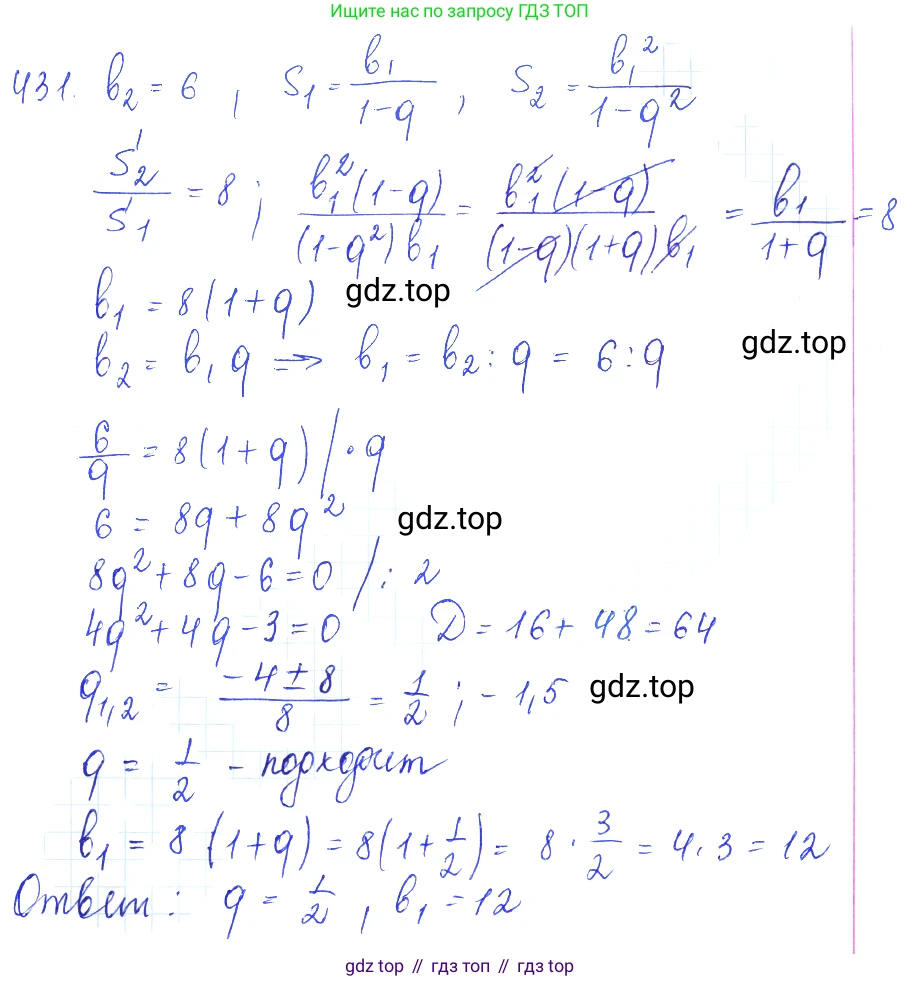 Ищите нас по запросу ГДЗ ТОП
431. b₂ = 6 , S₁ = b₁/(1-q) , S₂ = b₁²/(1-q²)
S₂/S₁ = 8 ; b₁²(1-q)/((1-q²) b₁) = b₁²(1-q)/((1-q)(1+q) b₁) = b₁/(1+q) = 8
b₁ = 8(1+q) gdz.top
b₂ = b₁ q => b₁ = b₂ : q = 6 : q gdz.top
6/q = 8(1+q) / · q
6 = 8q + 8q² gdz.top
8q² + 8q - 6 = 0 / : 2
4q² + 4q - 3 = 0 D = 16 + 48 = 64
q₁,₂ = (-4 ± 8)/8 = 1/2 ; - 1,5 gdz.top
q = 1/2 - подходит
b₁ = 8 (1+q) = 8(1 + 1/2) = 8 · 3/2 = 4 · 3 = 12
Ответ : q = 1/2 , b₁ = 12
gdz top // гдз топ // gdz.top